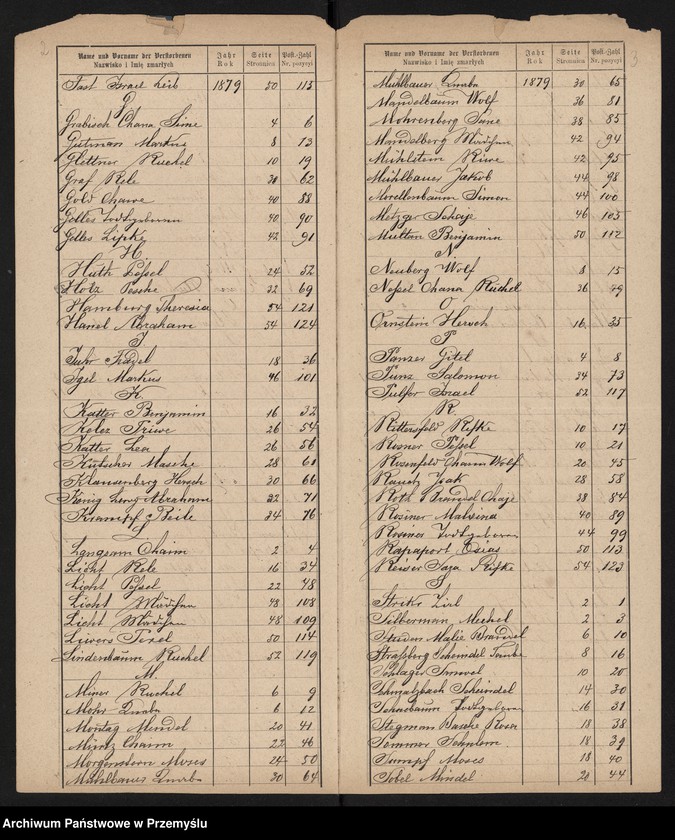 2
Name und Vorname der Verstorbenen Jahr Seite Post.-Zahl
Nazwisko i Imię zmarłych Rok Stronnica Nr. pozycyi
Fast Israel Leib 1879 50 115
G
Grabisch Chana Sime 4 6
Gutman Markus 8 13
Glettner Ruchel 10 19
Graf Rele 30 62
Gold Chawe 40 88
Gelles Todtgeboren 40 90
Gelles Lipke 42 91
H
Huth Pessel 24 52
Holz Pesche 32 69
Hamburg Theresia 54 121
Hanel Abraham 54 124
J
Juhr Fradel 18 36
Igel Markus 46 101
K
Katter Benjamin 16 32
Kelez Friwe 26 54
Katter Lea 26 56
Kutscher Masche 28 61
Klausenberg Hersch 30 66
König Abrahame 32 71
Krampf Beile 34 76
L
Lgngram Chaim 2 4
Licht Rele 16 34
Licht Pessel 22 48
Licht Mädchen 48 108
Licht Mädchen 48 109
Liwers 50 114
Lindenbaum Ruchel 52 119
M.
Miner Ruchel 6 9
Mehr Knabe 6 12
Montag Mendel 20 41
Müntz Chaim 22 46
Morgenstern Moses 24 50
Mühlbauer Knabe 30 64
3
Name und Vorname der Verstorbenen Jahr Seite Post.-Zahl
Nazwisko i Imię zmarłych Rok Stronnica Nr. pozycyi
Mühlbauer Knabe 1879 30 65
Mandelbaum Wolf 36 81
Mohrenberg Sime 38 85
Mandelberg Mädchen 42 94
Mühlstein Riwe 42 95
Mühlbauer Jakob 44 98
Morellenbaum Simon 44 100
Metzger Schaje 46 105
Multan Benjamin 50 112
N
Neuberg Wolf 8 15
Nessel Chana Ruchel 26 49
O
Ornstein Hersch 16 35
P
Panzer Gitel 4 8
Punz Salomon 34 73
Pulfer Israel 52 117
R.
Rittersfeld Rifke 10 17
Rosner Pessel 10 21
Rosenfeld Chaim Wolf 20 45
Rauch Isak 28 58
Roth Chaje 38 84
Rosiner Malwina 40 89
Rosiner Todtgeboren 44 99
Rapaport Osias 50 113
Reiser Sara Rifke 54 123
S
Striks Zirl 2 1
Silberman Mechel 2 3
Malie Brandel 6 10
Straßberg Schemdel Taube 8 16
Schlager Samuel 10 20
Schmalzbach Scheindel 14 30
Schnebaum Todtgeboren 16 31
Stegman Basche Rosa 18 38
Sommer 18 39
Sumpf Moses 18 40
Sobel Mindel 20 44
Archiwum Państwowe w Przemyślu